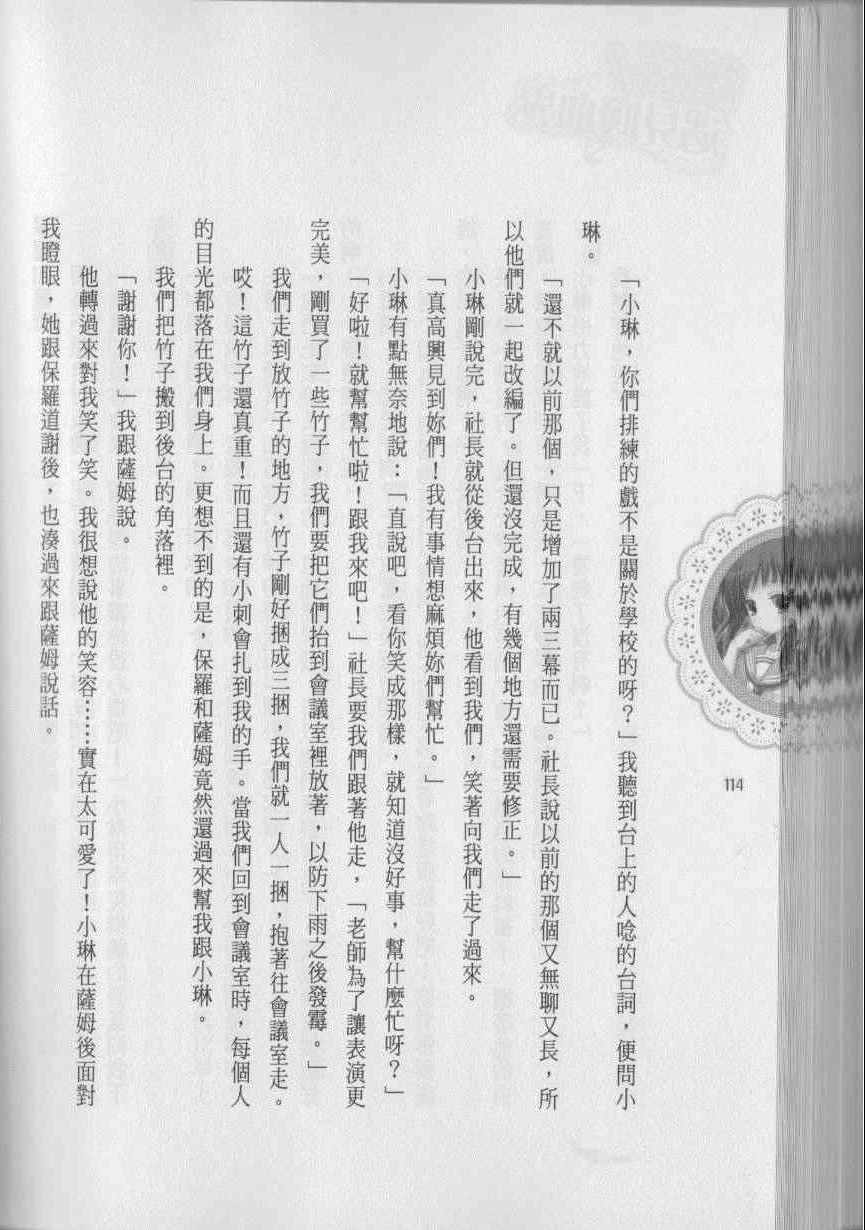 「小琳，你們排練的戲不是關於學校的呀？」我聽到台上的人唸的台詞，便問小
琳。
「還不就以前那個，只是增加了兩三幕而已。社長說以前的那個又無聊又長，所
以他們就一起改編了。但還沒完成，有幾個地方還需要修正。」
小琳剛說完，社長就從後台出來，他看到我們，笑著向我們走了過來。
「真高興見到妳們！我有事情想麻煩妳們幫忙。」
小琳有點無奈地說：「直說吧，看你笑成那樣，就知道沒好事，幫什麼忙呀？」
「好啦！就幫幫忙啦！跟我來吧！」社長要我們跟著他走，「老師為了讓表演更
完美，剛買了一些竹子，我們要把它們抬到會議室裡放著，以防下雨之後發霉。」
我們走到放竹子的地方，竹子剛好捆成三捆，我們就一人一捆，抱著往會議室走。
哎！這竹子還真重！而且還有小刺會扎到我的手。當我們回到會議室時，每個人
的目光都落在我們身上。更想不到的是，保羅和薩姆竟然還過來幫我跟小琳。
我們把竹子搬到後台的角落裡。
「謝謝你！」我跟薩姆說。
他轉過來對我笑了笑。我很想說他的笑容……實在太可愛了！小琳在薩姆後面對
我瞪眼，她跟保羅道謝後，也湊過來跟薩姆說話。
114